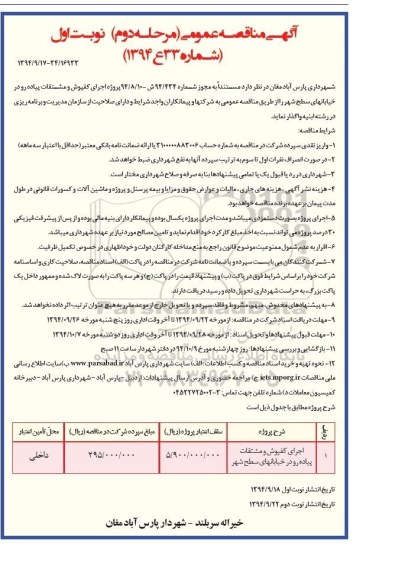 آگهی مناقصه عمومی (مرحله دوم) نوبت اول
(شماره ۳۳ع ۱۳۹۴)
۱۳۹۴/۹/۱۷-۲۴/۱۶۹۲۳
شهرداری پارس آباد مغان در نظر دارد مستنداً به مجوز شماره ۹۴/۴۲۴ش-۹۴/۸/۱۰ پروژه اجرای کفپوش و مشتقات پیاده رو در
خیابانهای سطح شهر را از طریق مناقصه عمومی به شرکتها و پیمانکاران واجد شرایط و دارای صلاحیت از سازمان مدیریت و برنامه ریزی
در رشته ابنیه واگذار نماید.
شرایط مناقصه:
۱- واریز نقدی سپرده شرکت در مناقصه به شماره حساب ۳۱۰۰۰۰۰۸۸۳۰۰۶ یا ارائه ضمانت نامه بانکی معتبر (حداقل با اعتبار سه ماهه)
۲- در صورت انصراف نفرات اول تا سوم به ترتیب سپرده آنها به نفع شهرداری ضبط خواهد شد.
۳- شهرداری در رد یا قبول یک یا تمامی پیشنهادها بنا به صرفه و صلاح شهرداری مختار است.
۴- هزینه نشر آگهی، هزینه های جاری، مالیات و عوارض حقوق و مزایا و بیمه پرسنل و پروژه و ماشین آلات و کسورات قانونی در طول
مدت پیمان بر عهده برنده مناقصه خواهد بود.
۵- اجرای پروژه بصورت دستمزدی میباشد و مدت اجرای پروژه یکسال بوده و پیمانکار دارای بنیه مالی بوده و از پس از پیشرفت فیزیکی
۳۰ درصد پروژه می تواند نسبت به اخذ مبلغ کارکرد خود اقدام نماید و تامین مصالح مورد نیاز بر عهده شهرداری میباشد.
۶- اقرار به عدم شمول ممنوعیت موضوع قانون راجع به منع مداخله کارکنان دولت و خود اظهاری در خصوص تکمیل ظرفیت.
۷- شرکت کنندگان می بایست سپرده و یا ضمانت نامه شرکت در مناقصه را در پاکت (الف) اسناد مناقصه، صلاحیت کاری و اساسنامه
شرکت خود را بر اساس شرایط فوق در پاکت (ب) و پیشنهاد قیمت را در پاکت (ج) و هر سه پاکت را به صورت لاک شده و ممهور داخل یک
پاکت بزرگ به حراست شهرداری تحویل داده و رسید دریافت دارند.
۸- به پیشنهادهای مخدوش، مبهم، مشروط و فاقد سپرده و یا تحویل خارج از موعد مقرر به هیچ عنوان ترتیب اثر داده نخواهد شد.
۹- مهلت دریافت اسناد شرکت در مناقصه: از مورخه ۱۳۹۴/۰۹/۲۲ تا آخر وقت اداری روز پنج شنبه مورخه ۱۳۹۴/۰۹/۲۶
۱۰- مهلت قبول پیشنهادها و تحویل اسناد: از مورخه ۱۳۹۴/۰۹/۲۸ تا آخر وقت اداری روز دوشنبه مورخه ۱۳۹۴/۱۰/۷
۱۱- بازگشایی و بررسی پیشنهادها: روز چهارشنبه مورخ ۹۴/۱۰/۹ در دفتر شهردار ساعت ۱۱ صبح
۱۲- نحوه تهیه و خرید اسناد مناقصه و کسب اطلاعات: الف) سایت شهرداری پارس آباد www.parsabad.ir ب) سایت اطلاع رسانی
ملی مناقصات iets.mporg.ir ج) مراجعه حضوری و آدرس ارسال پیشنهادات: اردبیل - پارس آباد - شهرداری پارس آباد - دبیرخانه
کمیسیون معاملات د) شماره تلفن جهت تماس: ۳-۰۴۵۳۲۷۲۵۰۰۲
شرح پروژه مطابق با جدول ذیل است
ردیف شرح پروژه سقف اعتبار پروژه (ریال) مبلغ سپرده شرکت در مناقصه (ریال) محل تأمین اعتبار
۱ اجرای کفپوش و مشتقات پیاده رو در خیابانهای سطح شهر ۵/۹۰۰/۰۰۰/۰۰۰ ۲۹۵/۰۰۰/۰۰۰ داخلی
تاریخ انتشار نوبت اول ۱۳۹۴/۹/۱۸
تاریخ انتشار نوبت دوم ۱۳۹۴/۹/۲۲
خیراله سربلند - شهردار پارس آباد مغان